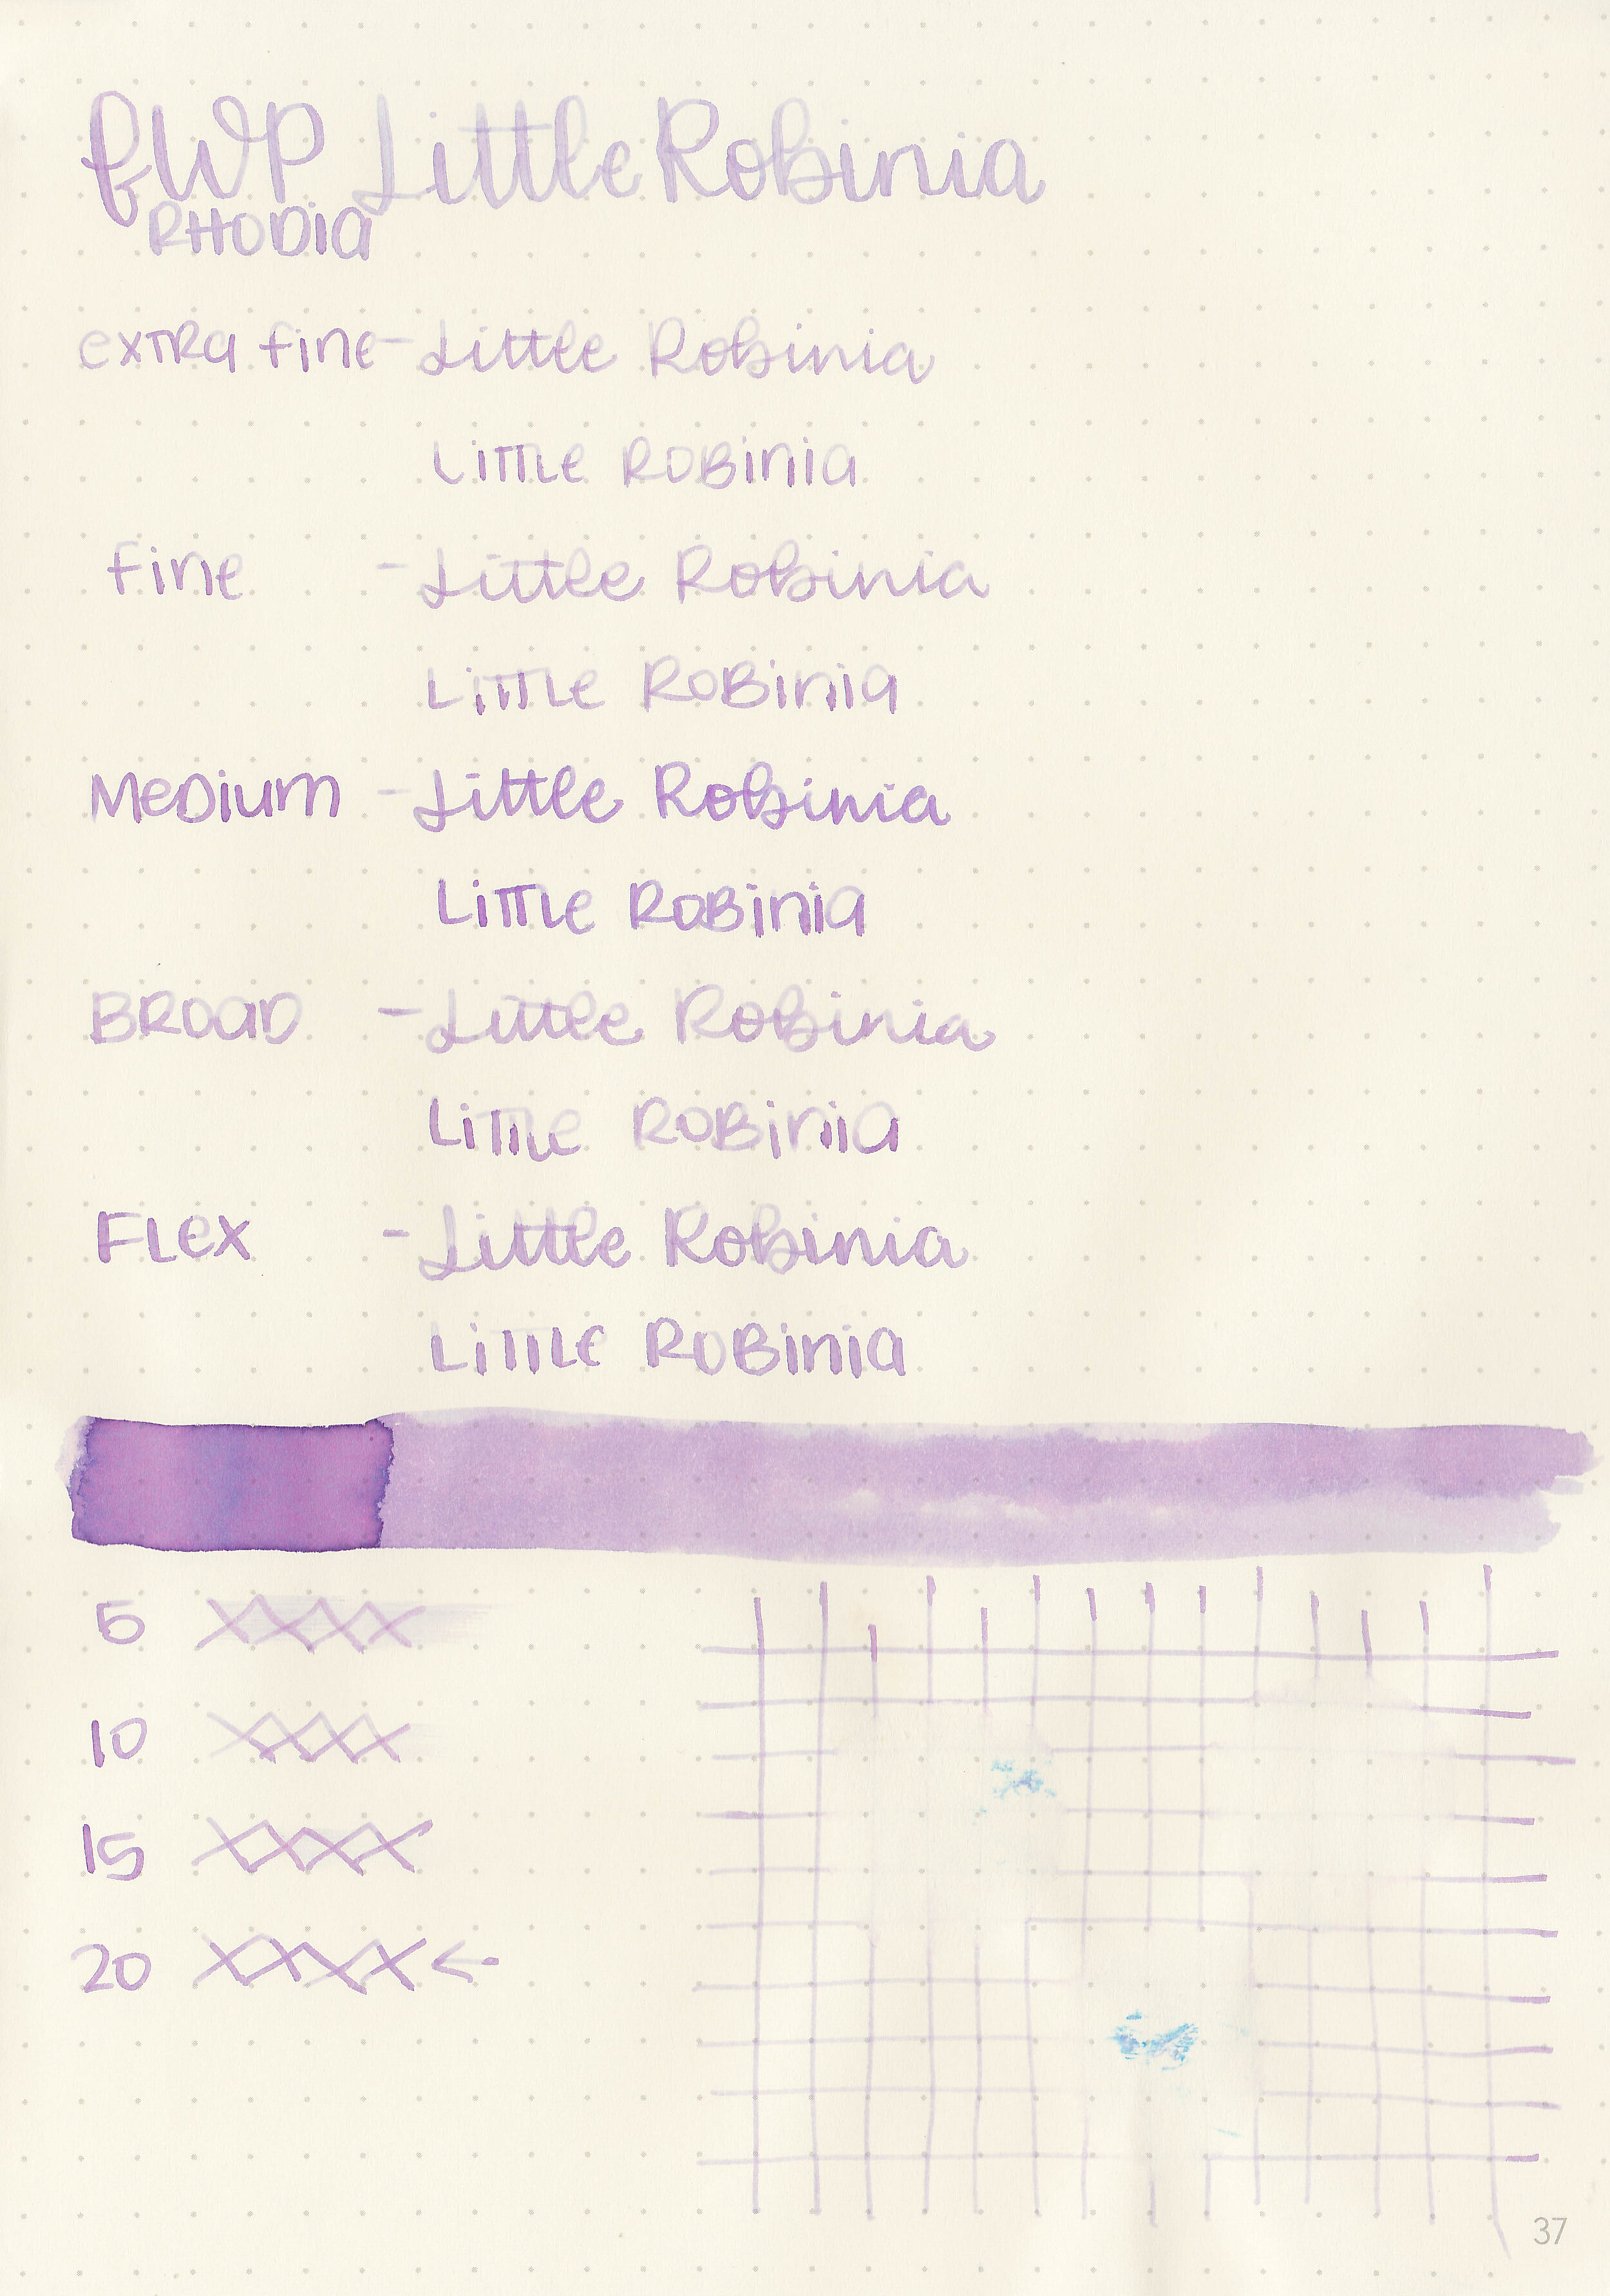 FWP Little Robinia
RHODIA
extra fine - Little Robinia
Little Robinia
fine - Little Robinia
Little Robinia
Medium - Little Robinia
Little Robinia
BROAD - Little Robinia
Little Robinia
FLex - Little Robinia
Little Robinia
5 XXXX
10 XXXX
15 XXXX
20 XXXX ←
37